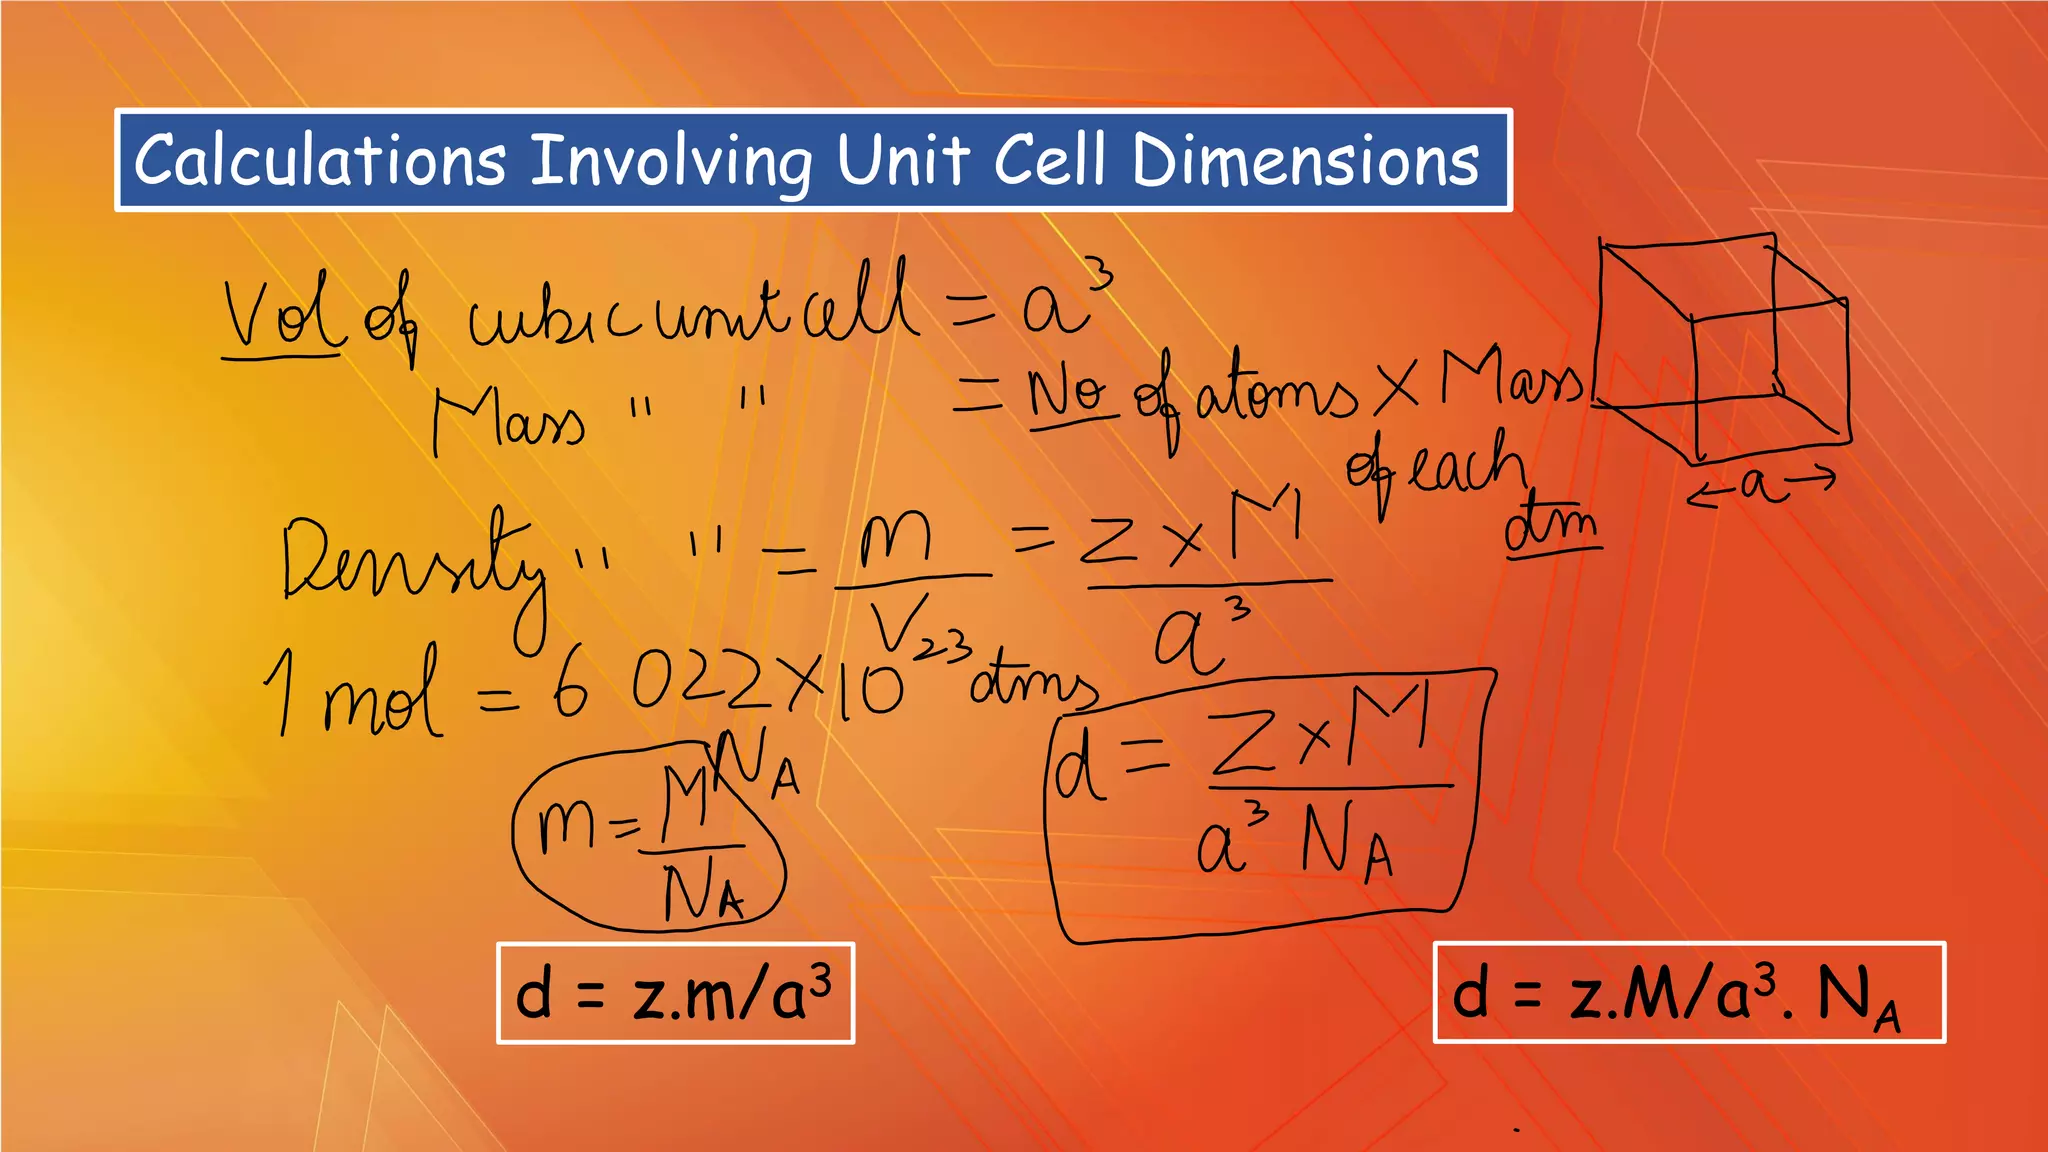 Calculations Involving Unit Cell Dimensions
Vol of cubic unit cell = a³
Mass " " = No of atoms × Mass
of each
atm
Density " " = m/V = z × M/a³
1 mol = 6 022×10²³ atms
N_A
m = M/N_A
d = Z × M/a³ N_A
← a →
d = z.m/a³
d = z.M/a³. N_A